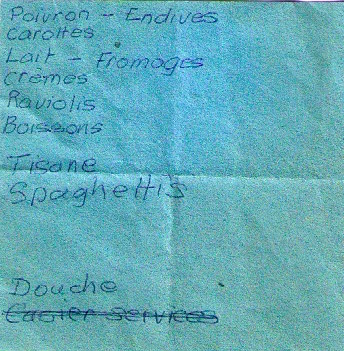 Poivron - Endives
carottes
Lait - Fromages
crèmes
Raviolis
Boissons
Tisane
Spaghettis
Douche
Casier Services